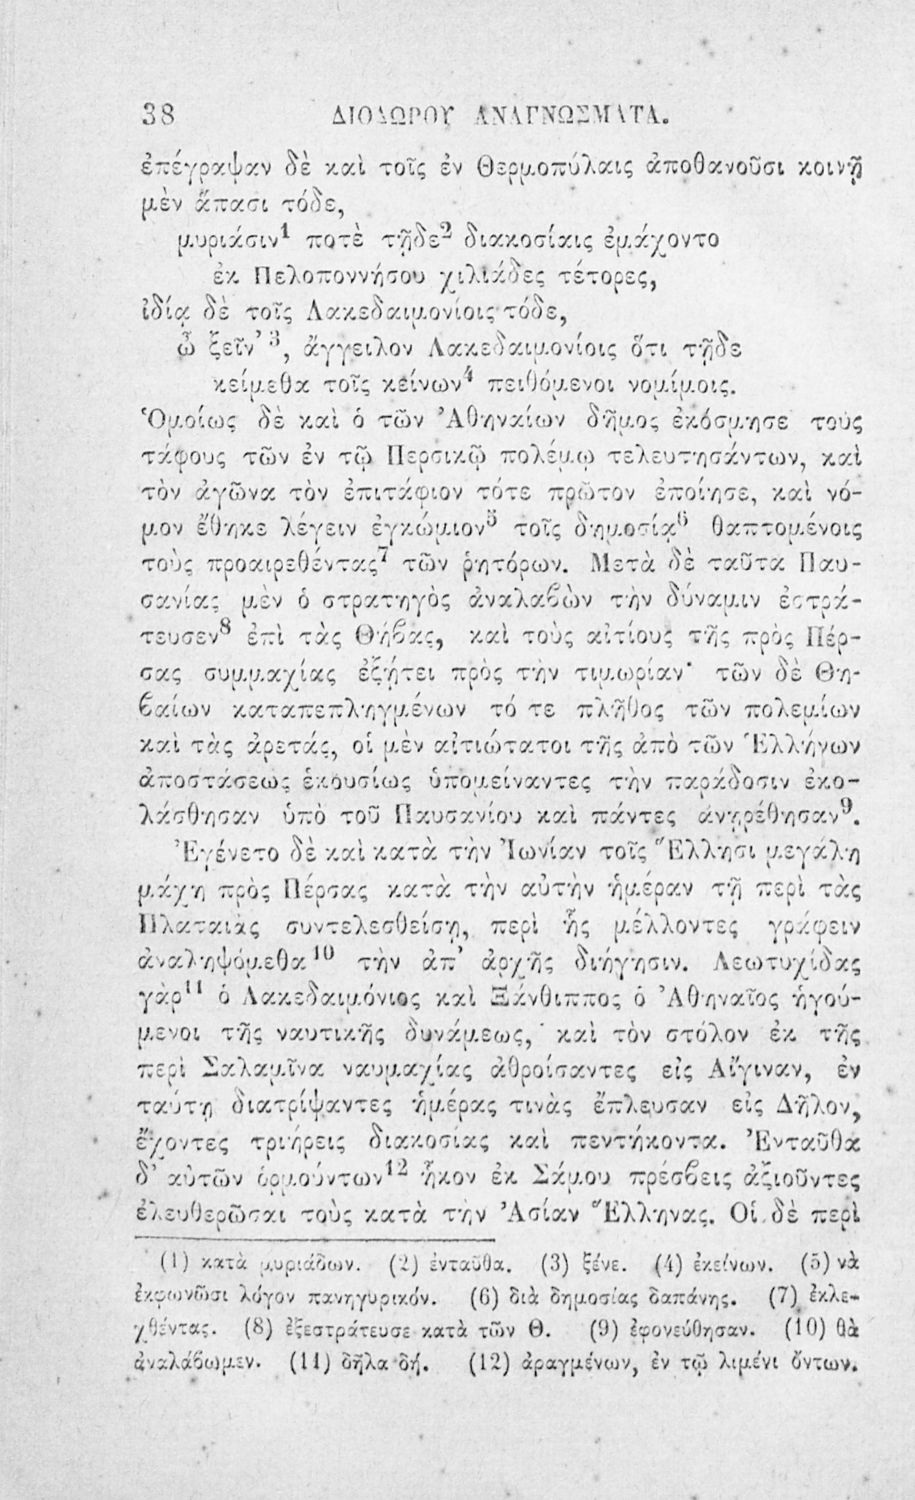 38 ΔΙΟΔΩΡΟΥ ΑΝΑΓΝΩΣΜΑΤΑ.
ἐπέγραψαν δὲ καὶ τοῖς ἐν Θερμοπύλαις ἀποθανοῦσι κοινῇ
μὲν ἅπασι τόδε,
μυριάσιν¹ ποτὲ τῇδε² διακοσίαις ἐμάχοντο
ἐκ Πελοποννήσου χιλιάδες τέτορες,
ἰδίᾳ δὲ τοῖς Λακεδαιμονίοις τόδε,
ὦ ξεῖν’³, ἄγγειλον Λακεδαιμονίοις ὅτι τῇδε
κείμεθα τοῖς κείνων⁴ πειθόμενοι νομίμοις.
Ὁμοίως δὲ καὶ ὁ τῶν Ἀθηναίων δῆμος ἐκόσμησε τοὺς
τάφους τῶν ἐν τῷ Περσικῷ πολέμῳ τελευτησάντων, καὶ
τὸν ἀγῶνα τὸν ἐπιτάφιον τότε πρῶτον ἐποίησε, καὶ νό-
μον ἔθηκε λέγειν ἐγκώμιον⁵ τοῖς δημοσίᾳ⁶ θαπτομένοις
τοὺς προαιρεθέντας⁷ τῶν ῥητόρων. Μετὰ δὲ ταῦτα Παυ-
σανίας μὲν ὁ στρατηγὸς ἀναλαβὼν τὴν δύναμιν ἐστρά-
τευσεν⁸ ἐπὶ τὰς Θήβας, καὶ τοὺς αἰτίους τῆς πρὸς Πέρ-
σας συμμαχίας ἐξῄτει πρὸς τὴν τιμωρίαν· τῶν δὲ Θη-
βαίων καταπεπληγμένων τό τε πλῆθος τῶν πολεμίων
καὶ τὰς ἀρετάς, οἱ μὲν αἰτιώτατοι τῆς ἀπὸ τῶν Ἑλλήνων
ἀποστάσεως ἑκουσίως ὑπομείναντες τὴν παράδοσιν ἐκο-
λάσθησαν ὑπὸ τοῦ Παυσανίου καὶ πάντες ἀνῃρέθησαν⁹.
Ἐγένετο δὲ καὶ κατὰ τὴν Ἰωνίαν τοῖς Ἕλλησι μεγάλη
μάχη πρὸς Πέρσας κατὰ τὴν αὐτὴν ἡμέραν τῇ περὶ τὰς
Πλαταιὰς συντελεσθείσῃ, περὶ ἧς μέλλοντες γράφειν
ἀναληψόμεθα¹⁰ τὴν ἀπ’ ἀρχῆς διήγησιν. Λεωτυχίδας
γὰρ¹¹ ὁ Λακεδαιμόνιος καὶ Ξάνθιππος ὁ Ἀθηναῖος ἡγού-
μενοι τῆς ναυτικῆς δυνάμεως, καὶ τὸν στόλον ἐκ τῆς
περὶ Σαλαμῖνα ναυμαχίας ἀθροίσαντες εἰς Αἴγιναν, ἐν
ταύτῃ διατρίψαντες ἡμέρας τινὰς ἔπλευσαν εἰς Δῆλον,
ἔχοντες τριήρεις διακοσίας καὶ πεντήκοντα. Ἐνταῦθα
δ’ αὐτῶν ὁρμούντων¹² ἧκον ἐκ Σάμου πρέσβεις ἀξιοῦντες
ἐλευθερῶσαι τοὺς κατὰ τὴν Ἀσίαν Ἕλληνας. Οἱ δὲ περὶ
(1) κατὰ μυριάδων. (2) ἐνταῦθα. (3) ξένε. (4) ἐκείνων. (5) νὰ
ἐκφωνῶσι λόγον πανηγυρικόν. (6) διὰ δημοσίας δαπάνης. (7) ἐκλε-
χθέντας. (8) ἐξεστράτευσε κατὰ τῶν Θ. (9) ἐφονεύθησαν. (10) θὰ
ἀναλάβωμεν. (11) δῆλα δή. (12) ἀραγμένων, ἐν τῷ λιμένι ὄντων.